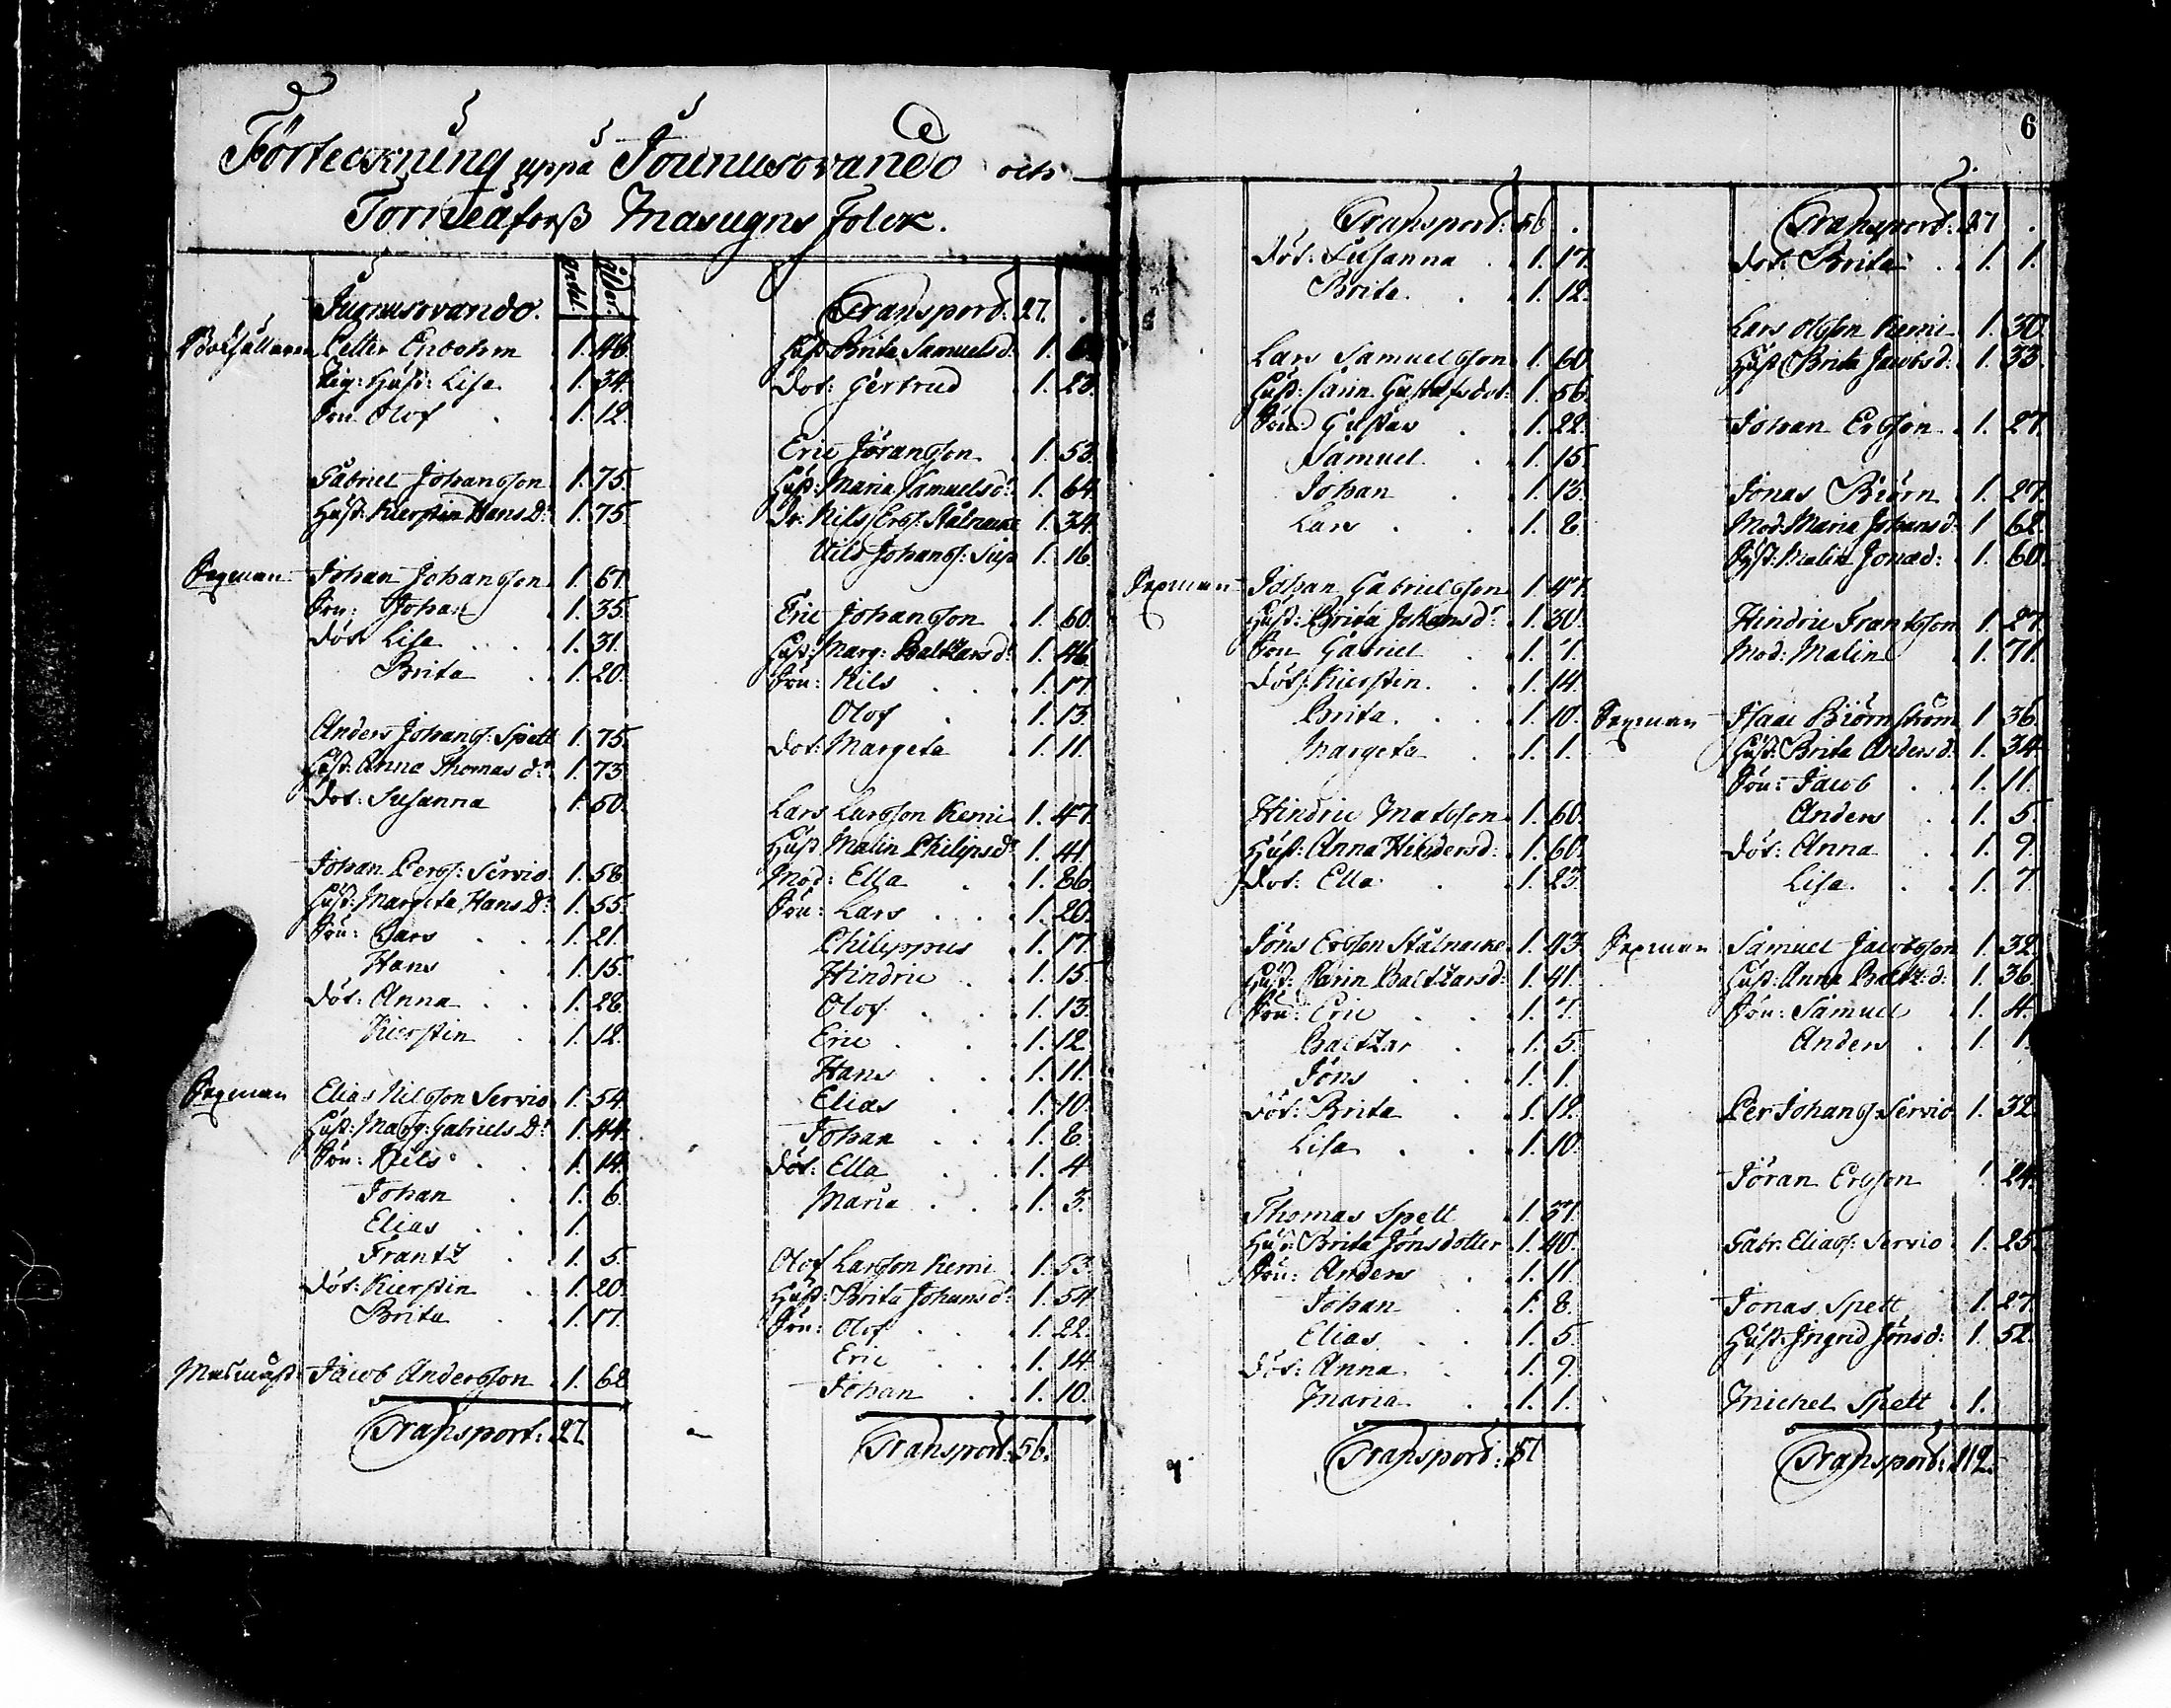 Förteckning uppå Jounusovando och
Torneåforß Masugns Folck.
Antal. ålder.
Jugnusovando.
Bokhållaren Petter Enbohm 1. 48.
Hust: Lisa 1. 34.
Son Olof 1. 12.
Gabriel Johansson 1. 75.
Hust: Kierstin Hans Dr 1. 75.
Sexman Johan Johansson 1. 67.
Son: Johan 1. 35.
Dot: Lisa 1. 31.
Brita 1. 20.
Anders Johanß: Spett 1. 75.
Hust: Anna Thomas dr 1. 73.
Dot: Susanna 1. 50.
Johan Perß: Servio 1. 58.
Hust: Margeta Hans Dr 1. 55.
Son: Lars 1. 21.
Hans 1. 15.
Dot: Anna 1. 28.
Kierstin 1. 12.
Sexman Elias Nilsson Servio 1. 54.
Hust: Marg: Gabriels Dr 1. 44.
Son: Nils 1. 14.
Johan 1. 6.
Elias 1.
Frantz 1. 5.
Dot: Kierstin 1. 20.
Brita 1. 17.
Masmäst: Jacob Andersson 1. 62
Transport: 27.
Transport: 27.
Hust Brita Samuelsd: 1.
Dot: Gertrud 1. 23.
Eric Jöransson 1. 53.
Hust: Maria Samuelsdr 1. 64.
Dr: Nils Ersß: Stålnacke 1. 34.
Nils Johanß: 1. 16.
Eric Johansson 1. 60.
Hust: Marg: Baltzarsdr 1. 46.
Son: Nils 1. 17.
Olof 1. 13.
Dot: Margeta 1. 11.
Lars Larsson Kemi 1. 47.
Hust Malin Philipsdr 1. 41.
Mod: Ella 1. 86.
Son: Lars 1. 20.
Philippus 1. 17.
Hindric 1. 15.
Olof 1. 13.
Eric 1. 12.
Hans 1. 11.
Elias 1. 10.
Johan 1. 8.
Dot: Ella 1. 4
Maria 1. 3.
Olof Larsson Kemi 1. 53.
Hust: Brita Johansdr 1. 54
Son: Olof 1. 22.
Eric 1. 14.
Johan 1. 10.
Transport: 56.
6
Transport: 56.
Dot: Susanna 1. 17.
Brita 1. 12.
Lars Samuelsson 1. 60.
Hust: Carin Gustafsdot: 1. 56.
Son: Gustav 1. 22.
Samuel 1. 15.
Johan 1. 13.
Lars 1. 8.
Sexman Johan Gabrielsson 1. 47.
Hust: Brita Johansdr 1. 30.
Son Gabriel 1. 7.
Dot: Kierstin 1. 14.
Brita 1. 10.
Margeta 1. 1.
Hindric Matsson 1. 60.
Hust: Anna Hindersd: 1. 60.
Dot: Ella 1. 23.
Jöns Ersson Stålnacke 1. 43.
Hust: Carin Baltzarsd: 1. 41.
Son: Eric 1. 7.
Baltzar 1. 5.
Jöns 1. 1.
Dot: Brita 1. 12.
Lisa 1. 10.
Thomas Spett 1. 37.
Hust: Brita Jönsdotter 1. 40.
Son: Anders 1. 11.
Johan 1. 8.
Elias 1. 5.
Dot: Anna 1. 9.
Maria 1. 1.
Transport: 87
Transport: 87
Dot: Brita 1. 1.
Lars Olsson Kemi 1. 30.
Hust Brita Jacobsd: 1. 33.
Johan Ersson 1. 27.
Jonas Biörn 1. 27.
Mod: Maria Johansd: 1 62.
Syst: Malin Jonasd: 1. 60.
Hindric Frantsson 1. 27.
Mod: Malin 1. 71.
Sexman Isaac Biörnström 1 36.
Hust: Brita Andersd: 1. 34.
Son: Jacob 1. 11.
Anders 1. 5.
Dot: Anna 1. 9.
Lisa 1. 7.
Sexman Samuel Jacobsson 1. 32.
Hust: Anna Baltz: d: 1. 36.
Son: Samuel 1. 4.
Anders 1. 1.
Per Johanß: Servio 1. 32.
Jöran Ersson 1. 24.
Gabr: Eliaß: Servio 1. 25.
Jonas Spett 1. 27.
Hust: Ingrid Jönsd: 1. 52.
Michel Spett 1.
Transport: 112.